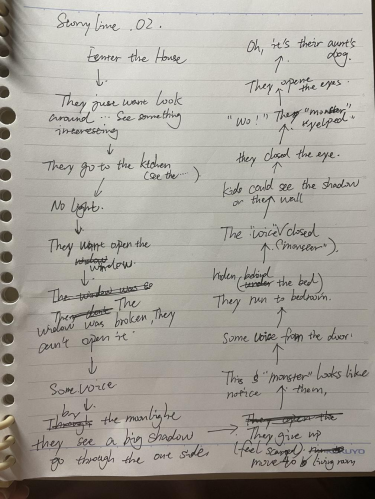 Story line. 02.
Enter the House
They just want look
around ... See something
interesting
They go to the kichen
(see the ... )
No light.
They want open the
window
window.
The window was so
They don't The
window was broken, They
can't open it.
Some voice
Through by the moonlight
they see a big shadow
go through the one side.
They open the
They give up
(feel scared)
move to (living room)
This "monster" looks like
notice them,
Some voice from the door.
They run to bedroom.
hiden, behind
(under the bed)
The "voice" closed
("monster").
Kids could see the shadow
on the wall
they closed the eye.
"Wo!" The "monster"
yelped"
They opene
the eyes.
Oh, it's their aunt's
dog.